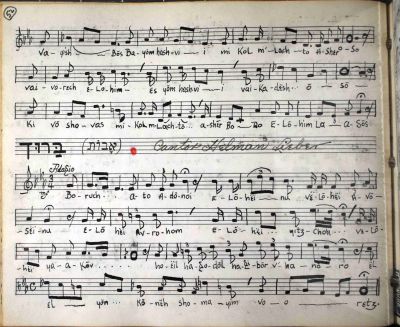 54
Va-yish Bös Ba-yöm hash-vi - i mi Kol m'lach-to Asher o-So
vai-vorech E-Lo-him - Es yöm hashvi - i vai-Kadësh - ö - sö
Ki vö sho-vas mi-Kol m'Lach-tö - ashër Bo-Ro E-Lö-him La-a-Sös
(אבות) Cantor Helman Lieber
Adagio
Boruch - a-to A-dö-noi E-Löhë-nu vë-Löhë-i A-vö-
Sei-nu E-Lö hëi Av-ro-hom E-Lö-hëi yitz-Chok vë-Lö-
hëi ya-a-Köv hoël ha-godöl ha-gi-bör v'ha no-ro ël
El yön Könëh sho-ma-yim vo-o retz.